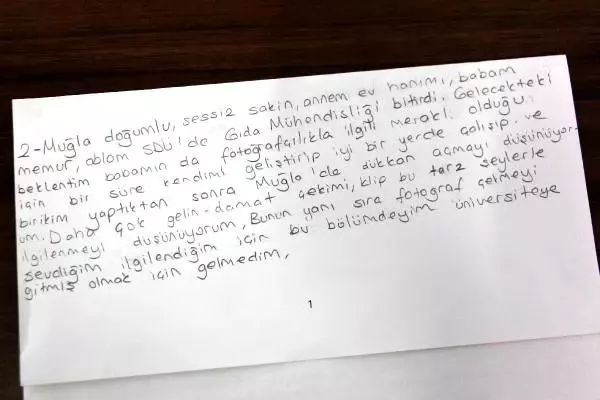 2-Muğla doğumlu, sessiz sakin, annem ev hanımı, babam
memur, ablam SDÜ'de Gıda Mühendisliği bitirdi. Gelecekteki
beklentim babamın da fotoğrafçılıkla ilgili meraklı olduğu
için bir süre kendimi geliştirip iyi bir yerde çalışıp, ve
birikim yaptıktan sonra Muğla'da dükkan açmayı düşünüyor-
um. Daha çok gelin-damat çekimi, klip bu tarz şeylerle
ilgilenmeyi düşünüyorum, Bunun yanı sıra fotoğraf çekmeyi
sevdiğim ilgilendiğim için bu bölümdeyim üniversiteye
gitmiş olmak için gelmedim,
1